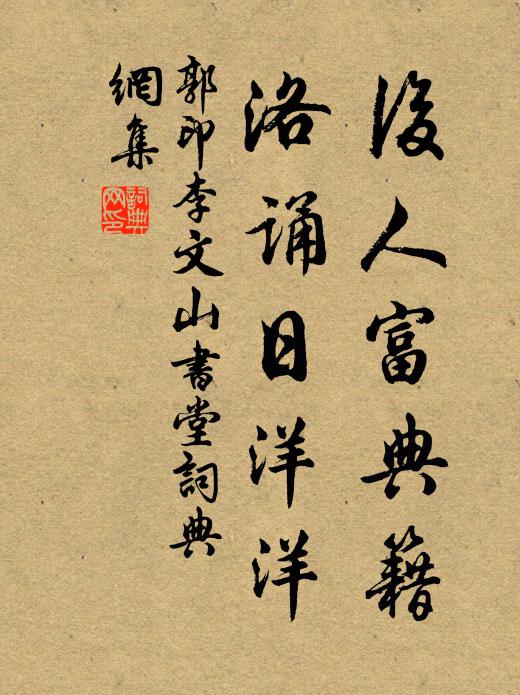 後人富典籍
洛誦日洋洋
郭印李文山書堂詞典
網集
詞典網印